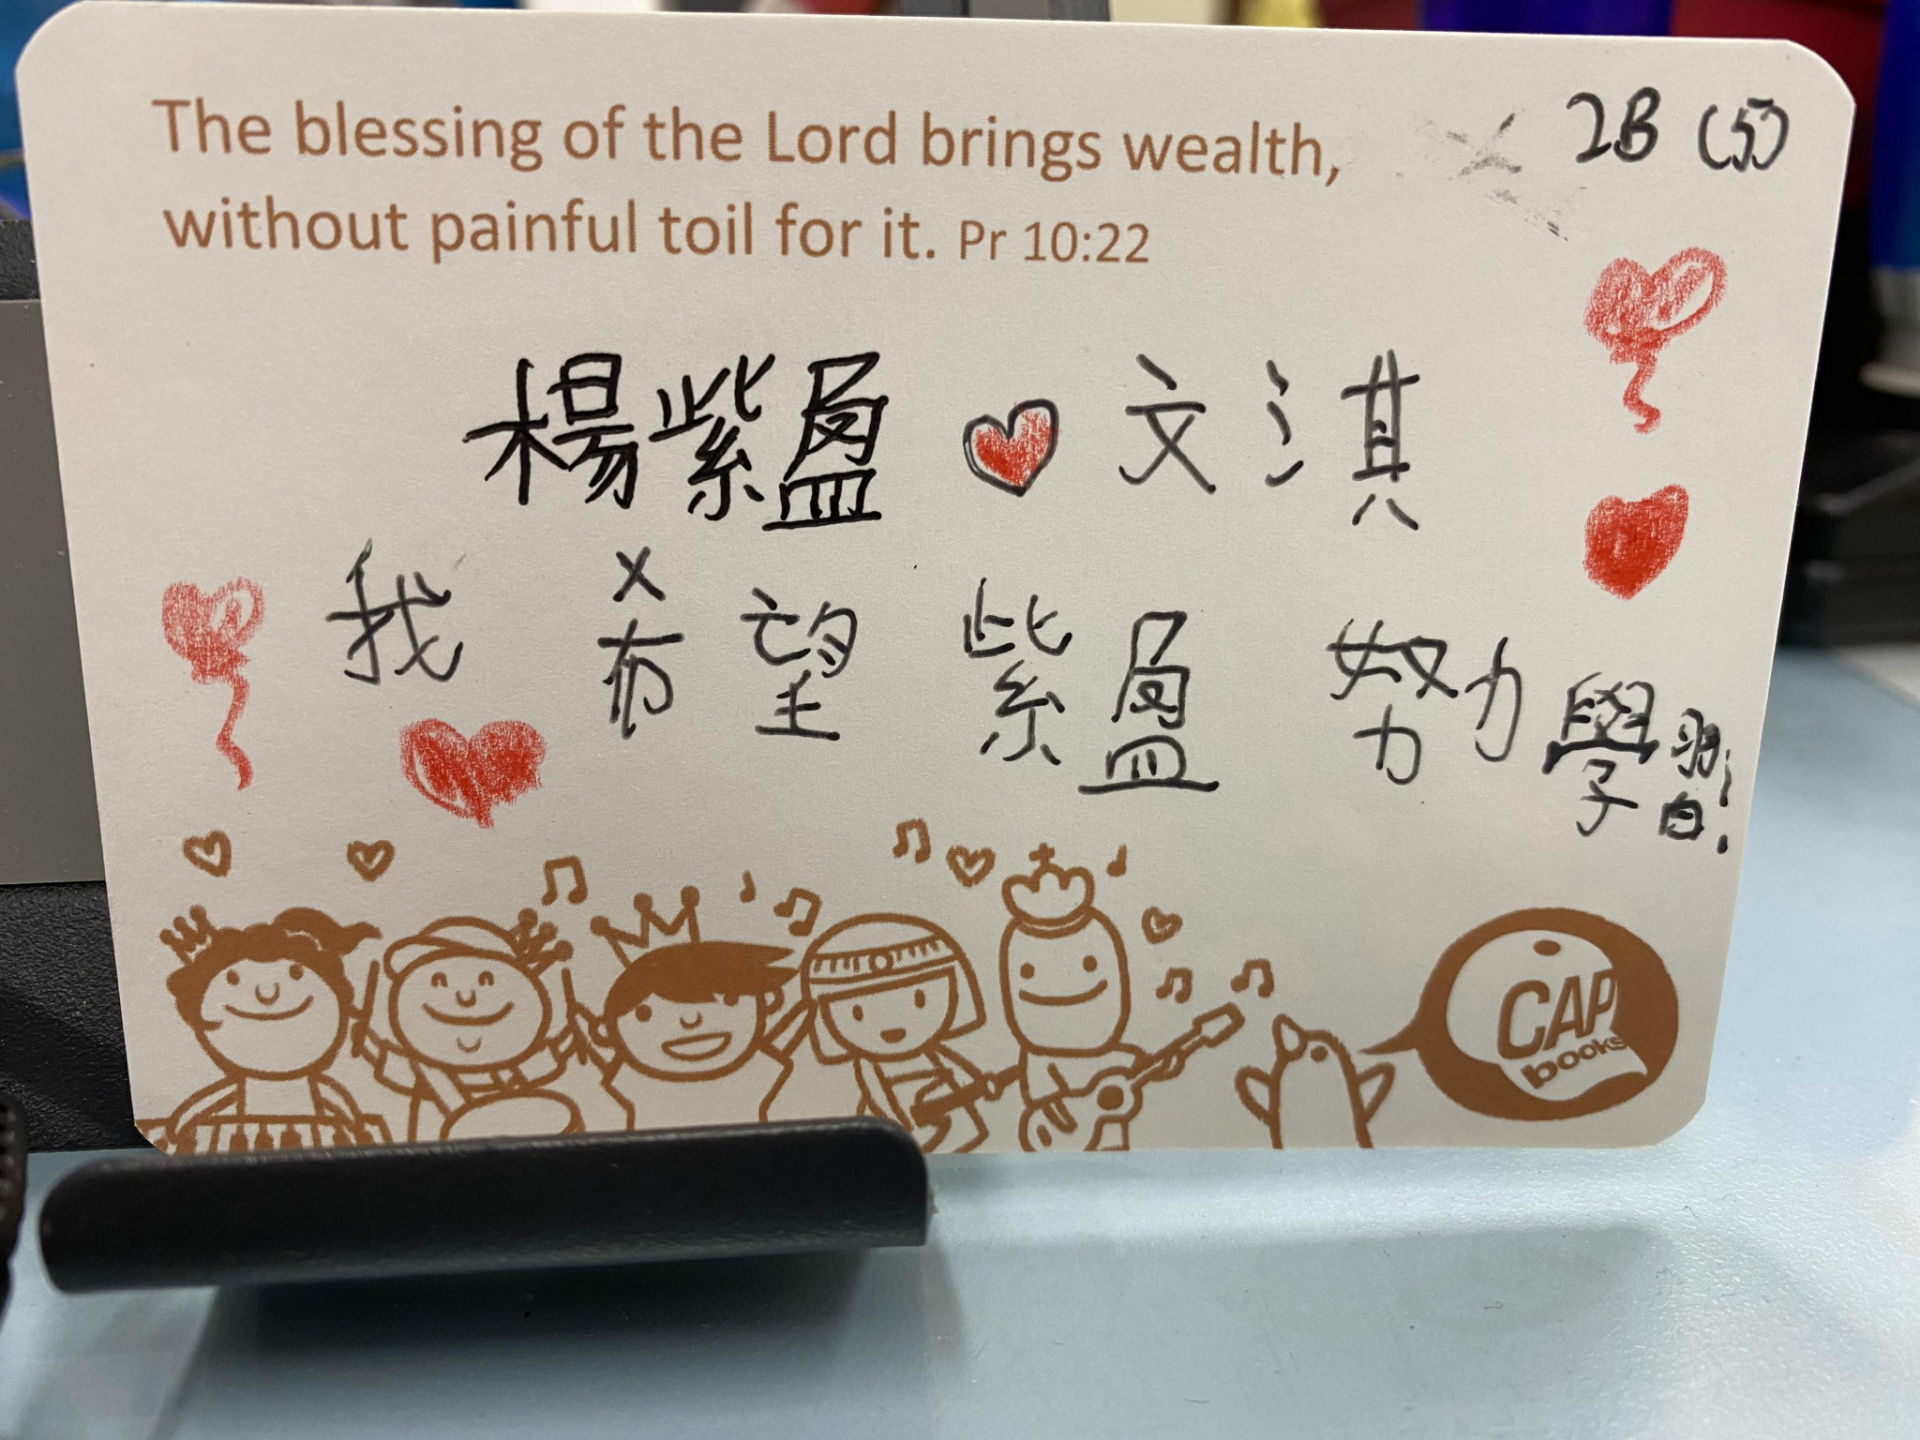 2B (5)
The blessing of the Lord brings wealth,
without painful toil for it. Pr 10:22
楊紫盈 文淇
我 希望 紫盈 努力學習!
CAP
books